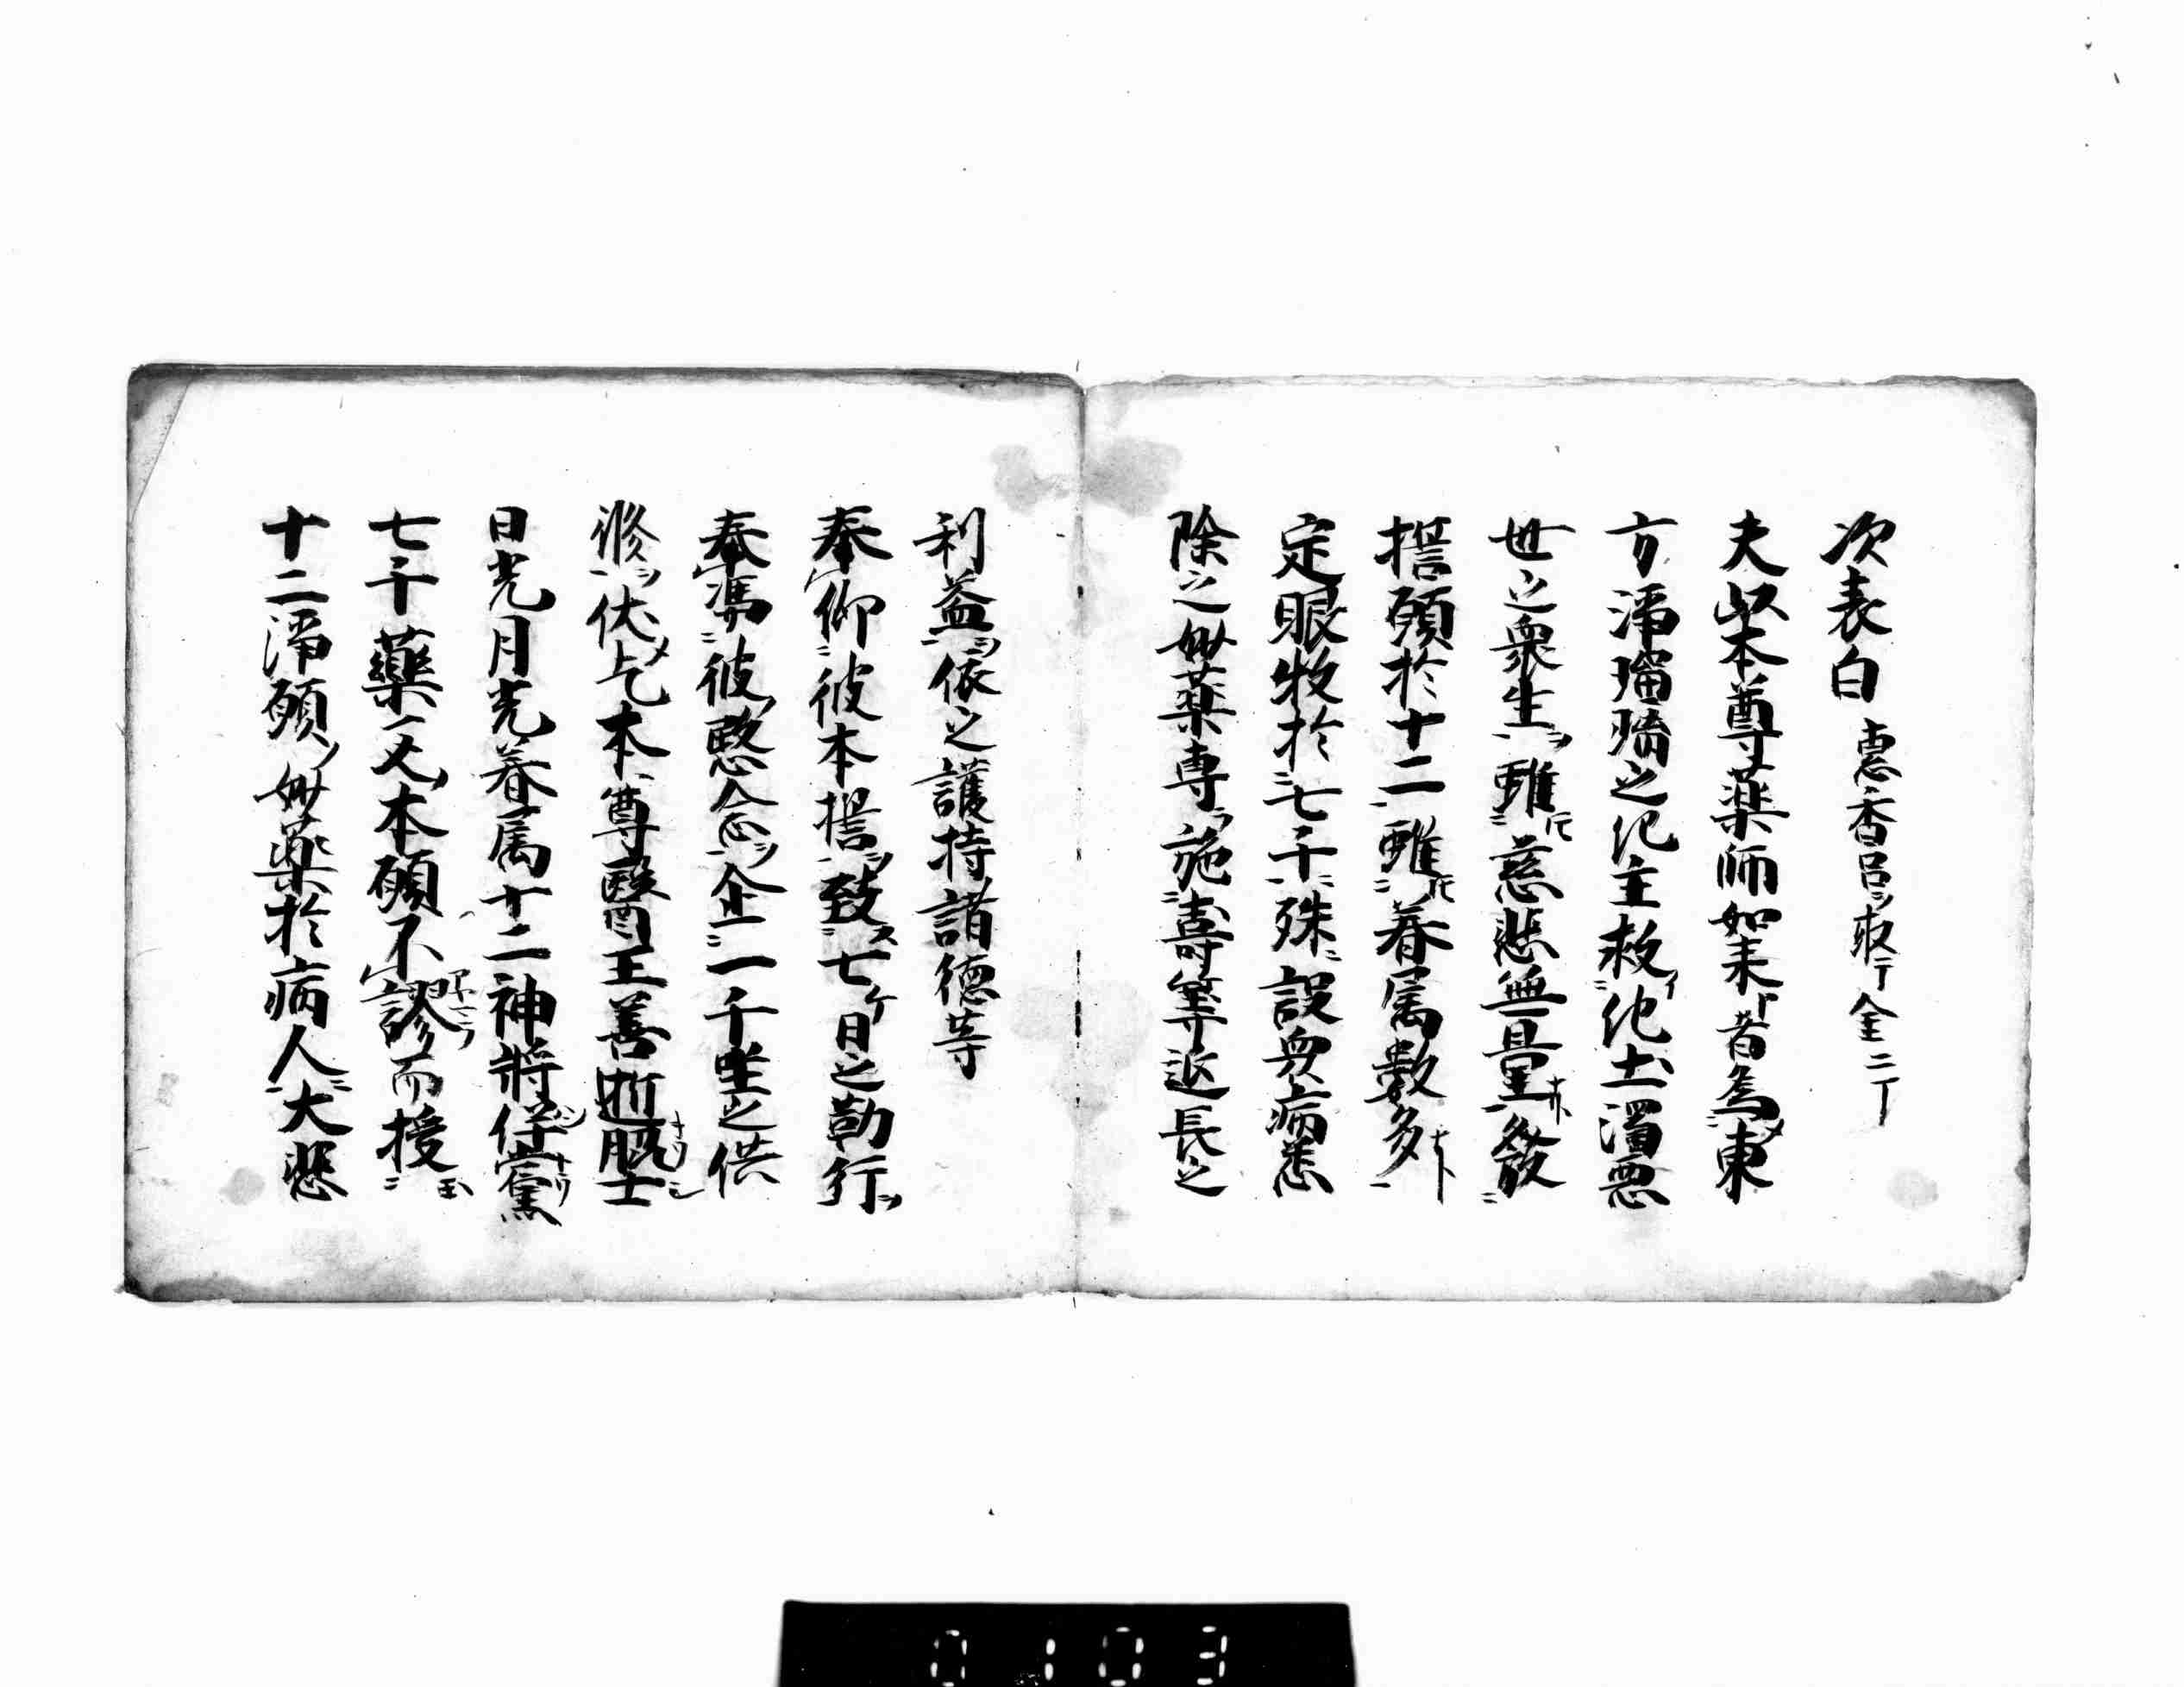 次表白 恵香呂ヲ取テ金二丁
夫以本尊薬師如来ト者為メ東
方浄瑠璃之化主救イ他土濁悪
世之衆生ヲ雖モ慈悲無量ナリト發
擔願於十二雖モ眷属數多ナリト
定眼牧於七千殊設與病悉
除之妙薬専ラ施壽筭延長之
利益ヲ依之護持諸徳等
奉仰彼本擔ヲ致ス七ケ日之勤行ヲ
奉馮彼愍念ヲ企一千坐之供
修ヲ伏メ乞本尊醫王善逝脇士
日光月光眷属十二神將伴黨
七千藥叉本願不謬而授玉
十二浄願ノ妙薬於病人ニ大悲
0103